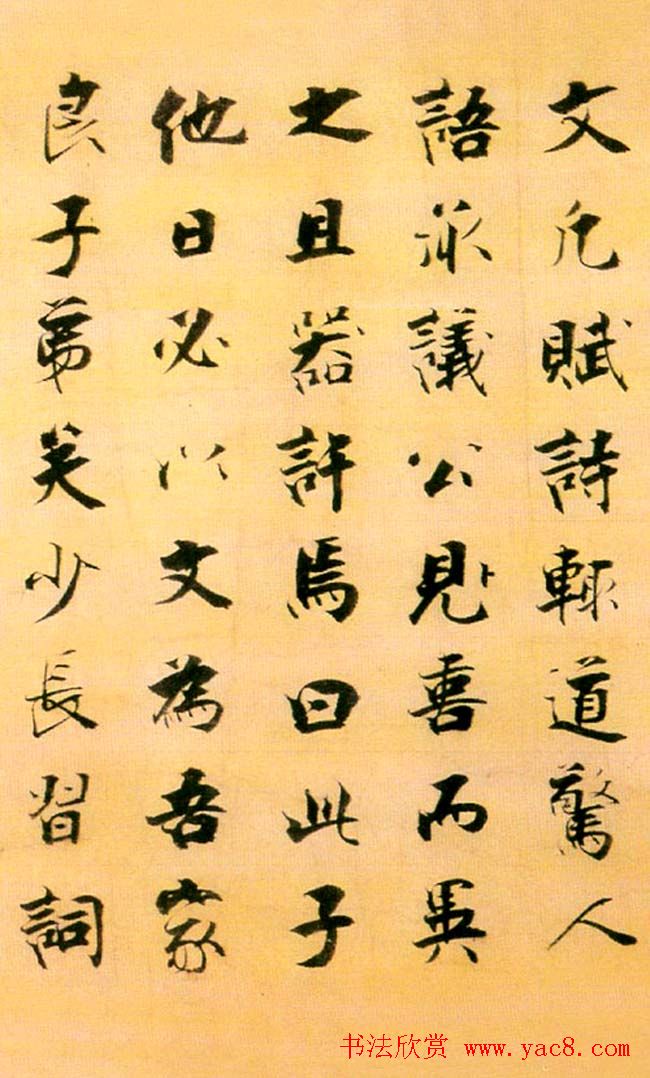 文凡賦詩輒道驚人
語承議公見喜而異
之且器許焉曰此子
他日必以文為吾家
良子弟矣少長習詞
书法欣赏 www.yac8.com